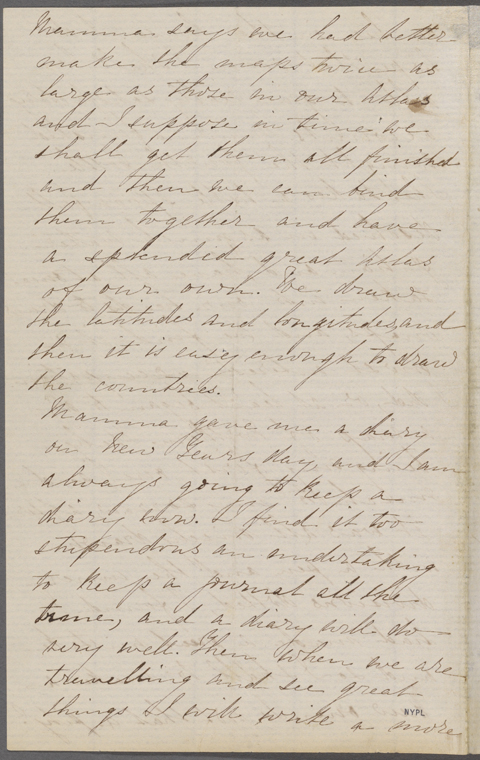 Mamma says we had better
make the maps twice as
large as those in our Atlas
and I suppose in time we
shall get them all finished
and then we can bind
them together and have
a splendid great Atlas
of our own. We draw
the latitudes and longitudes and
then it is easy enough to draw
the countries.
Mamma gave me a diary
on New Years day, and I am
always going to keep a
diary now. I find it too
stupendous an undertaking
to keep a journal all the
time, and a diary will do
very well. Then when we are
travelling and see great
things I will write a more
NYPL